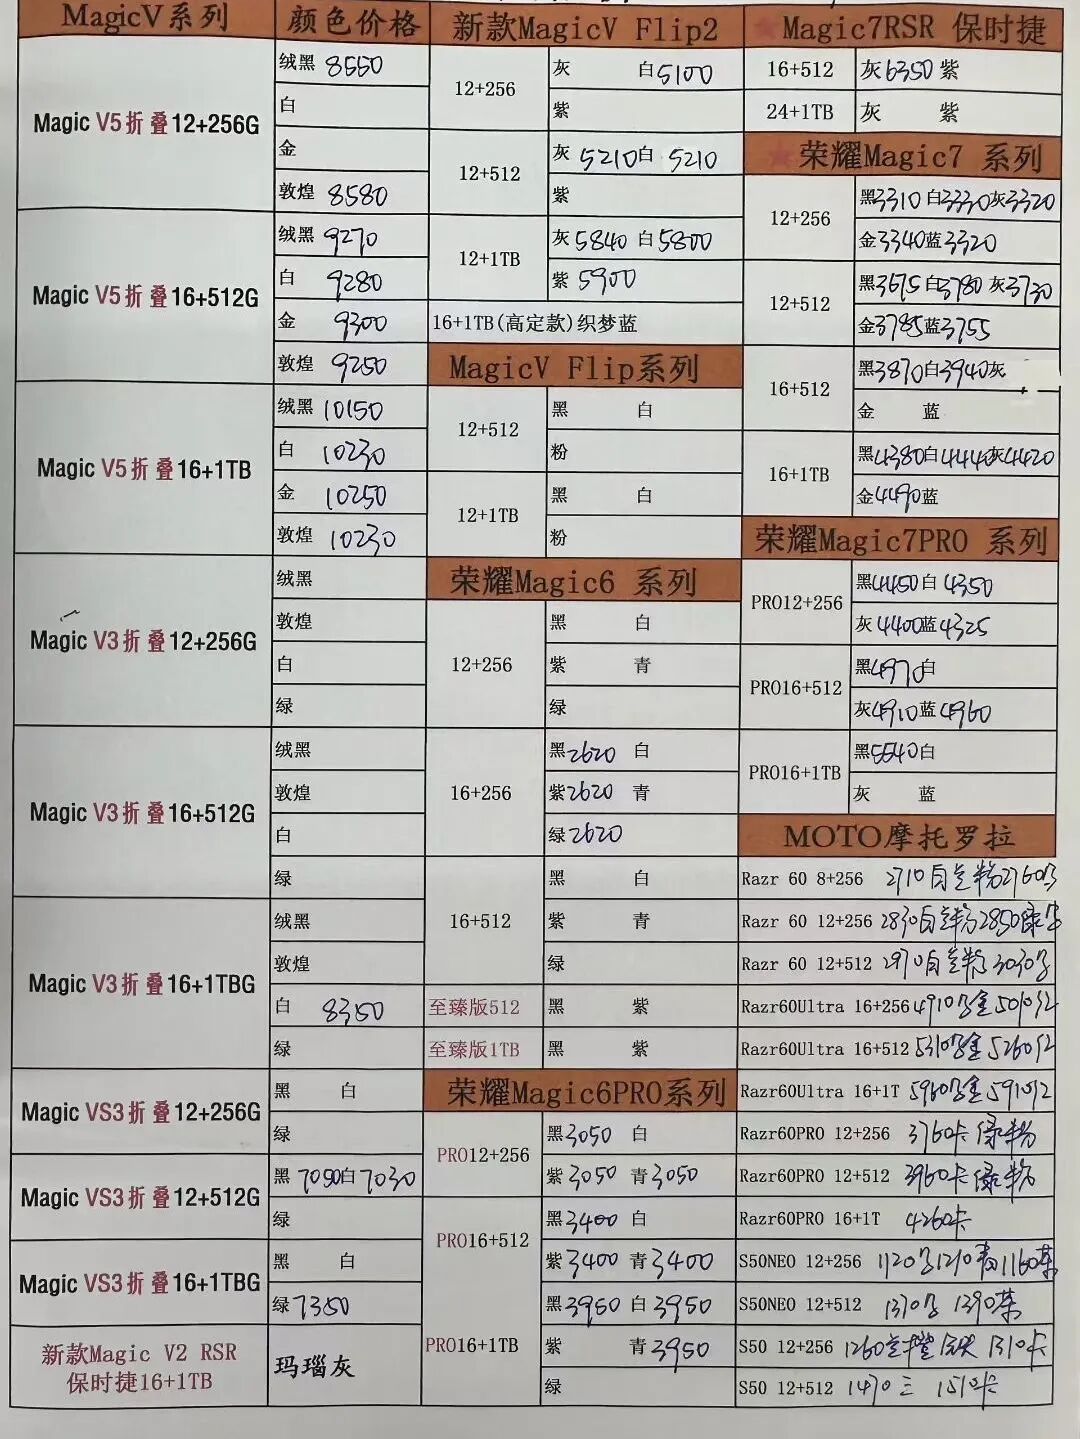 MagicV系列
颜色价格
Magic V5折叠12+256G
绒黑 8550
白
金
敦煌 8580
Magic V5折叠16+512G
绒黑 9270
白 9280
金 9300
敦煌 9250
Magic V5折叠16+1TB
绒黑 10150
白 10230
金 10250
敦煌 10230
Magic V3折叠12+256G
绒黑
敦煌
白
绿
Magic V3折叠16+512G
绒黑
敦煌
白
绿
Magic V3折叠16+1TBG
绒黑
敦煌
白 8350
绿
Magic VS3折叠12+256G
黑 白
绿
Magic VS3折叠12+512G
黑 7050 白 7030
绿
Magic VS3折叠16+1TBG
黑 白
绿 7350
新款Magic V2 RSR
保时捷16+1TB
玛瑙灰
新款MagicV Flip2
12+256
灰 白 5100
紫
12+512
灰 5210 白 5210
紫
12+1TB
灰 5840 白 5800
紫 5900
16+1TB(高定款)织梦蓝
MagicV Flip系列
12+512
黑 白
粉
12+1TB
黑 白
粉
荣耀Magic6 系列
12+256
黑 白
紫 青
绿
16+256
黑 2620 白
紫 2620 青
绿 2620
16+512
黑 白
紫 青
绿
至臻版512
黑 紫
至臻版1TB
黑 紫
荣耀Magic6PRO系列
PRO12+256
黑 3050 白
紫 3050 青 3050
PRO16+512
黑 3400 白
紫 3400 青 3400
PRO16+1TB
黑 3950 白 3950
紫 青 3950
绿
★Magic7RSR 保时捷
16+512
灰 6350 紫
24+1TB
灰 紫
★荣耀Magic7 系列
12+256
黑 3310 白 3330 灰 3320
金 3340 蓝 3320
12+512
黑 3675 白 3780 灰 3730
金 3785 蓝 3755
16+512
黑 3870 白 3940 灰
金 蓝
16+1TB
黑 4380 白 4440 灰 4420
金 4490 蓝
荣耀Magic7PRO 系列
PRO12+256
黑 4450 白 4350
灰 4400 蓝 4325
PRO16+512
黑 4970 白
灰 4910 蓝 4960
PRO16+1TB
黑 5540 白
灰 蓝
MOTO摩托罗拉
Razr 60 8+256 2710 粉 2760
Razr 60 12+256 2830 粉 2850
Razr 60 12+512 2970 粉 3030
Razr60Ultra 16+256 4910 金 5010
Razr60Ultra 16+512 5310 金 5260
Razr60Ultra 16+1T 5960 金 5910
Razr60PRO 12+256 3760 卡 绿 粉
Razr60PRO 12+512 3960 卡 绿 粉
Razr60PRO 16+1T 4260 卡
S50NEO 12+256 1120 1210 1160
S50NEO 12+512 1370 1390
S50 12+256 1260 1310 卡
S50 12+512 1470 1510 卡